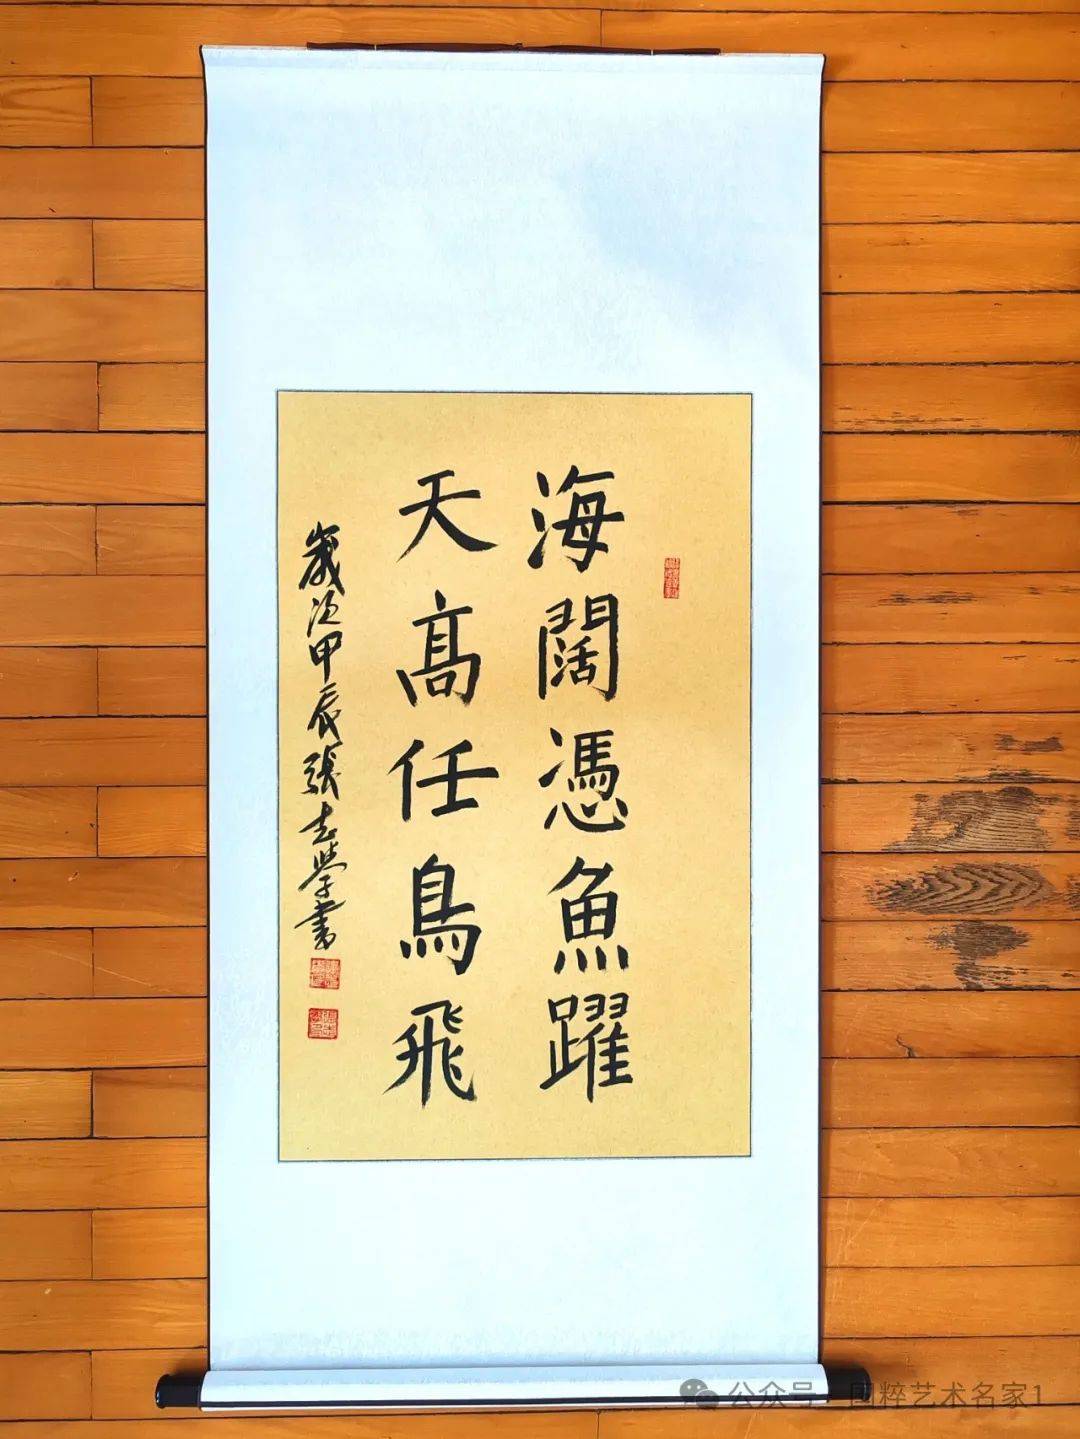 海闊憑魚躍
天高任鳥飛
歲次甲辰張志學書
公众号·国粹艺术名家1